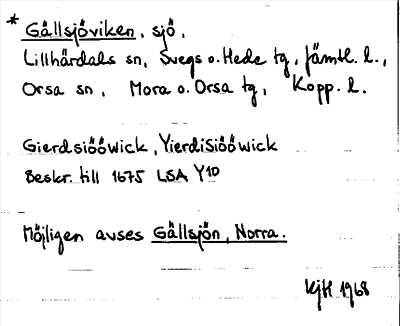 * Gällsjöviken, sjö,
Lillhärdals sn, Svegs o. Hede tg, Jämtl. l.,
Orsa sn, Mora o. Orsa tg, Kopp. l.
Gierdsiööwick, Yierdisiööwick
Beskr. till 1675 LSA Y10
Möjligen avses Gällsjön, Norra.
KjH 1968